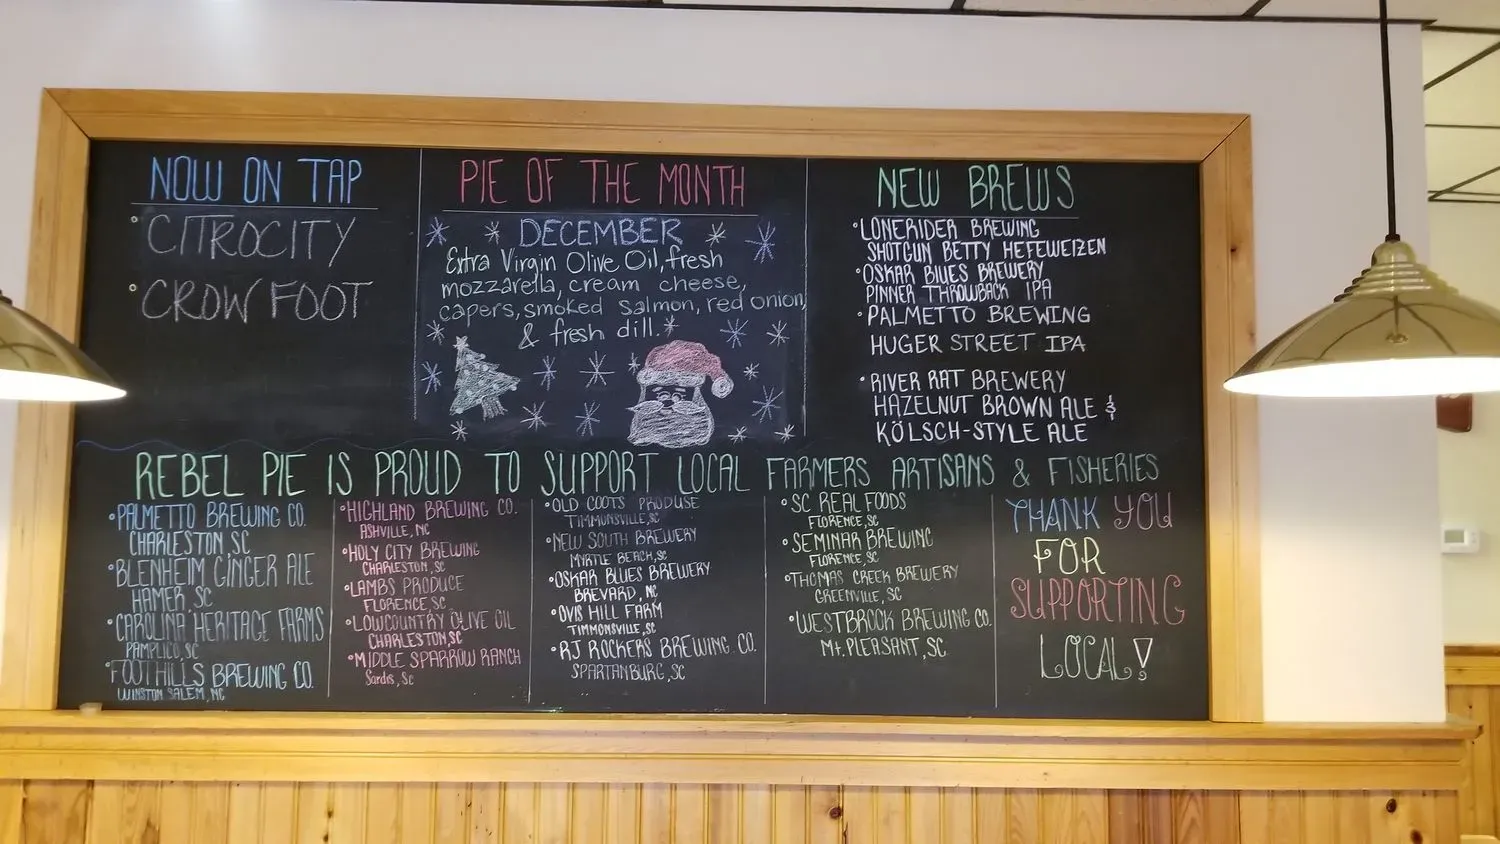 NOW ON TAP
CITROCITY
CROW FOOT
PIE OF THE MONTH
DECEMBER
Extra Virgin Olive Oil, fresh
mozzarella, cream cheese,
capers, smoked salmon, red onion,
& fresh dill.
NEW BREWS
LONERIDER BREWING
SHOTGUN BETTY HEFEWEIZEN
OSKAR BLUES BREWERY
PINNER THROWBACK IPA
PALMETTO BREWING
HUGER STREET IPA
RIVER RAT BREWERY
HAZELNUT BROWN ALE &
KÖLSCH-STYLE ALE
REBEL PIE IS PROUD TO SUPPORT LOCAL FARMERS ARTISANS & FISHERIES
PALMETTO BREWING CO.
CHARLESTON, SC
BLENHEIM GINGER ALE
HAMER, SC
CAROLINA HERITAGE FARMS
PAMPLICO, SC
FOOTHILLS BREWING CO.
WINSTON SALEM, NC
HIGHLAND BREWING CO.
ASHVILLE, NC
HOLY CITY BREWING
CHARLESTON, SC
LAMBS PRODUCE
FLORENCE, SC
LOWCOUNTRY OLIVE OIL
CHARLESTON, SC
MIDDLE SPARROW RANCH
Sardis, Sc
OLD COOTS PRODUSE
TIMMONSVILLE, SC
NEW SOUTH BREWERY
MYRTLE BEACH, SC
OSKAR BLUES BREWERY
BREVARD, NC
OVIS HILL FARM
TIMMONSVILLE, SC
RJ ROCKERS BREWING CO.
SPARTANBURG, SC
SC REAL FOODS
FLORENCE, SC
SEMINAR BREWING
FLORENCE, SC
THOMAS CREEK BREWERY
GREENVILLE, SC
WESTBROOK BREWING CO.
Mt. PLEASANT, SC
THANK YOU
FOR
SUPPORTING
LOCAL!